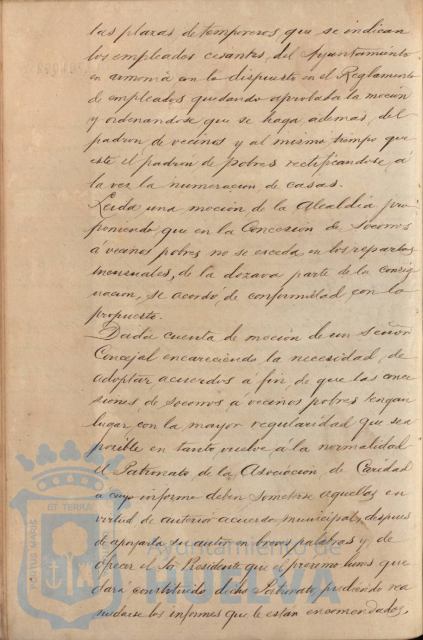 las plazas de temporeros que se indican
los empleados cesantes, del Ayuntamiento
en armonia con lo dispuesto en el Reglamento
de empleados quedando aprobada la moción
y ordenandose que se haga ademas, del
padron, de vecinos y al mismo tiempo que
este el padron de pobres rectificandose, á
la vez la numeracion de casas.
Leida una moción de la Alcaldia pro-
poniendo que en la Concesion de Socorros
á vecinos pobres no se exceda en los repartos
mensuales, de la dozava parte de la consig-
nacion, se acordó, de conformidad con lo
propuesto.
Dada cuenta de moción de un señor
Concejal encareciendo la necesidad, de
adoptar acuerdos á fin, de que las conce-
siones de socorros á vecinos pobres tengan
lugar, con la mayor regularidad que sea
posible en tanto, vuelve á la normalidad
el Patronato, de la Asociacion de Caridad
a cuyo informe deben Someterse aquellas en
virtud de anterior acuerdo municipal, despues
de apoyarla su autor en breves palabras y de
ofrecer el Sr. Presidente que el proximo lunes que
dará constituido dicho Patronato pudiendo rea
nudarse los informes que le estan encomendados,
Ayuntamiento de
HUELVA
PORTUS MARIS
ET TERRAE